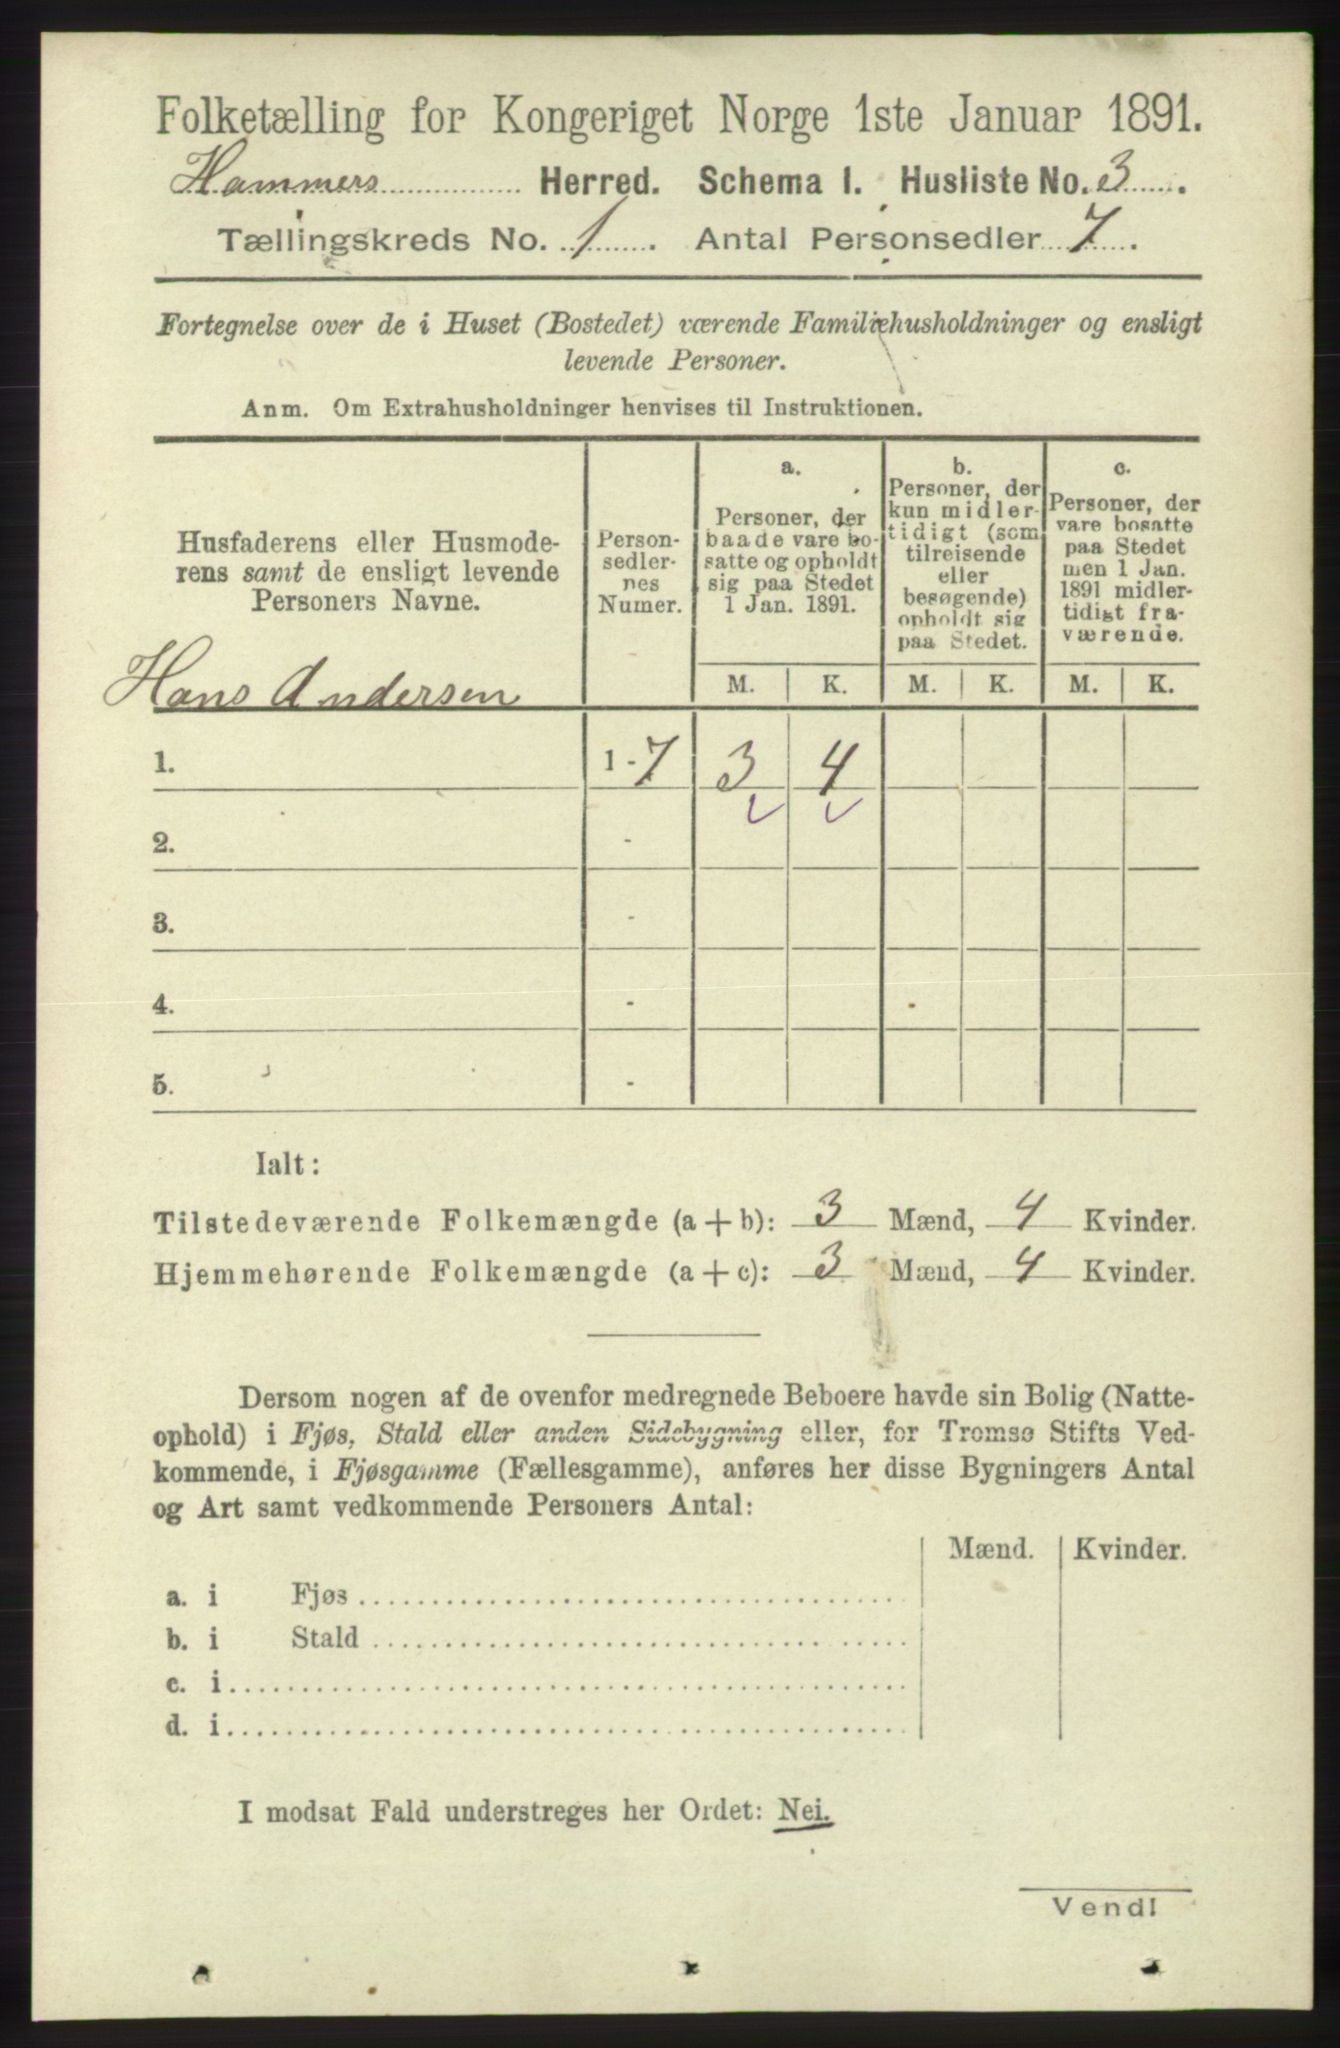 Folketælling for Kongeriget Norge 1ste Januar 1891.
Hammers Herred. Schema I. Husliste No. 3.
Tællingskreds No. 1. Antal Personsedler 7.
Fortegnelse over de i Huset (Bostedet) værende Familiehusholdninger og ensligt
levende Personer.
Anm. Om Extrahusholdninger henvises til Instruktionen.
Husfaderens eller Husmode-
rens samt de ensligt levende
Personers Navne.
Person-
sedler-
nes
Numer.
a.
Personer, der
baade vare bo-
satte og opholdt
sig paa Stedet
1 Jan. 1891.
b.
Personer, der
kun midler-
tidigt (som
tilreisende
eller
besøgende)
opholdt sig
paa Stedet.
c.
Personer, der
vare bosatte
paa Stedet
men 1 Jan.
1891 midler-
tidigt fra-
værende.
M. K. M. K. M. K.
Hans Andersen
1. 1 - 7 3 4
2. -
3. -
4. -
5. -
Ialt:
Tilstedeværende Folkemængde (a + b): 3 Mænd, 4 Kvinder.
Hjemmehørende Folkemængde (a + c): 3 Mænd, 4 Kvinder.
Dersom nogen af de ovenfor medregnede Beboere havde sin Bolig (Natte-
ophold) i Fjøs, Stald eller anden Sidebygning eller, for Tromsø Stifts Ved-
kommende, i Fjøsgamme (Fællesgamme), anføres her disse Bygningers Antal
og Art samt vedkommende Personers Antal:
Mænd. Kvinder.
a. i Fjøs
b. i Stald
c. i
d. i
I modsat Fald understreges her Ordet: Nei.
Vend!